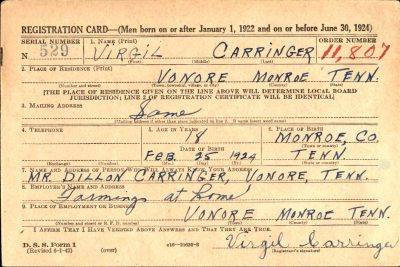 REGISTRATION CARD—(Men born on or after January 1, 1922 and on or before June 30, 1924)
SERIAL NUMBER 1. NAME (Print) ORDER NUMBER
N 529 VIRGIL CARRINGER 11,807
(First) (Middle) (Last)
2. PLACE OF RESIDENCE (Print)
VONORE MONROE TENN.
(Number and street) (Town, township, village, or city) (County) (State)
[THE PLACE OF RESIDENCE GIVEN ON THE LINE ABOVE WILL DETERMINE LOCAL BOARD
JURISDICTION; LINE 2 OF REGISTRATION CERTIFICATE WILL BE IDENTICAL]
3. MAILING ADDRESS
Same
[Mailing address if other than place indicated on line 2. If same insert word same]
4. TELEPHONE 5. AGE IN YEARS 6. PLACE OF BIRTH
18 MONROE, CO.
DATE OF BIRTH (Town or county)
FEB. 25 1924 TENN.
(Exchange) (Number) (Mo.) (Day) (Yr.) (State or country)
7. NAME AND ADDRESS OF PERSON WHO WILL ALWAYS KNOW YOUR ADDRESS
MR. DILLON CARRINGER, VONORE, TENN.
8. EMPLOYER'S NAME AND ADDRESS
Farming at home
9. PLACE OF EMPLOYMENT OR BUSINESS
VONORE MONROE TENN.
(Number and street or R. F. D. number) (Town) (County) (State)
I AFFIRM THAT I HAVE VERIFIED ABOVE ANSWERS AND THAT THEY ARE TRUE.
D. S. S. Form 1
(Revised 6-1-42) (over) Virgil Carringer
(Registrant's signature)